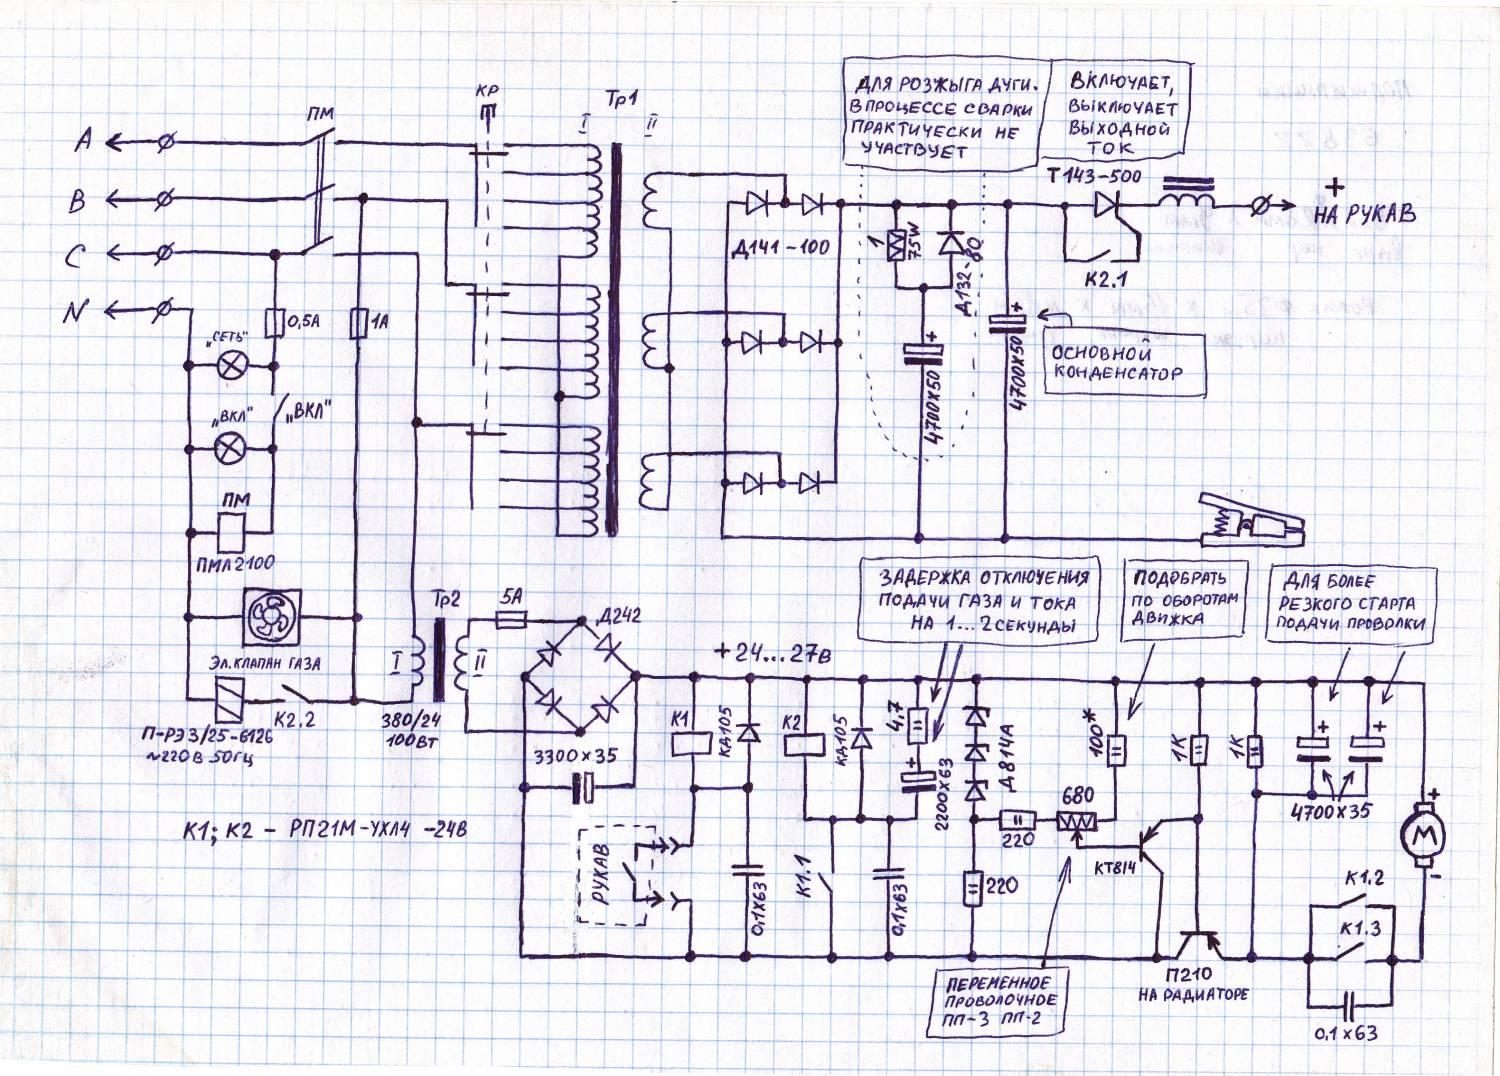 A
B
C
N
ПМ
КР
Тр1
I
II
ДЛЯ РОЗЖЫГА ДУГИ.
В ПРОЦЕССЕ СВАРКИ
ПРАКТИЧЕСКИ НЕ
УЧАСТВУЕТ
ВКЛЮЧАЕТ,
ВЫКЛЮЧАЕТ
ВЫХОДНОЙ
ТОК
Т143-500
+
НА РУКАВ
Д141-100
1
75W
Д132-80
К2.1
+
4700х50
+
4700х50
ОСНОВНОЙ
КОНДЕНСАТОР
0,5А
1А
„СЕТЬ"
„ВКЛ"
„ВКЛ"
ПМ
ПМЛ2100
ЭЛ.КЛАПАН ГАЗА
К2.2
П-РЭ 3/25-6126
~220В 50ГЦ
Тр2
I
II
380/24
100ВТ
5А
Д242
3300х35
+24...27В
ЗАДЕРЖКА ОТКЛЮЧЕНИЯ
ПОДАЧИ ГАЗА И ТОКА
НА 1...2 СЕКУНДЫ
ПОДОБРАТЬ
ПО ОБОРОТАМ
ДВИЖКА
ДЛЯ БОЛЕЕ
РЕЗКОГО СТАРТА
ПОДАЧИ ПРОВОЛКИ
К1
КД105
К2
КД105
4,7
+
2200х63
Д814А
220
220
680
100*
1К
1К
+
+
4700х35
+
М
-
К1; К2 - РП21М-УХЛ4 -24В
РУКАВ
0,1х63
К1.1
0,1х63
КТ814
П210
НА РАДИАТОРЕ
К1.2
К1.3
0,1х63
ПЕРЕМЕННОЕ
ПРОВОЛОЧНОЕ
ПП-3 ПП-2